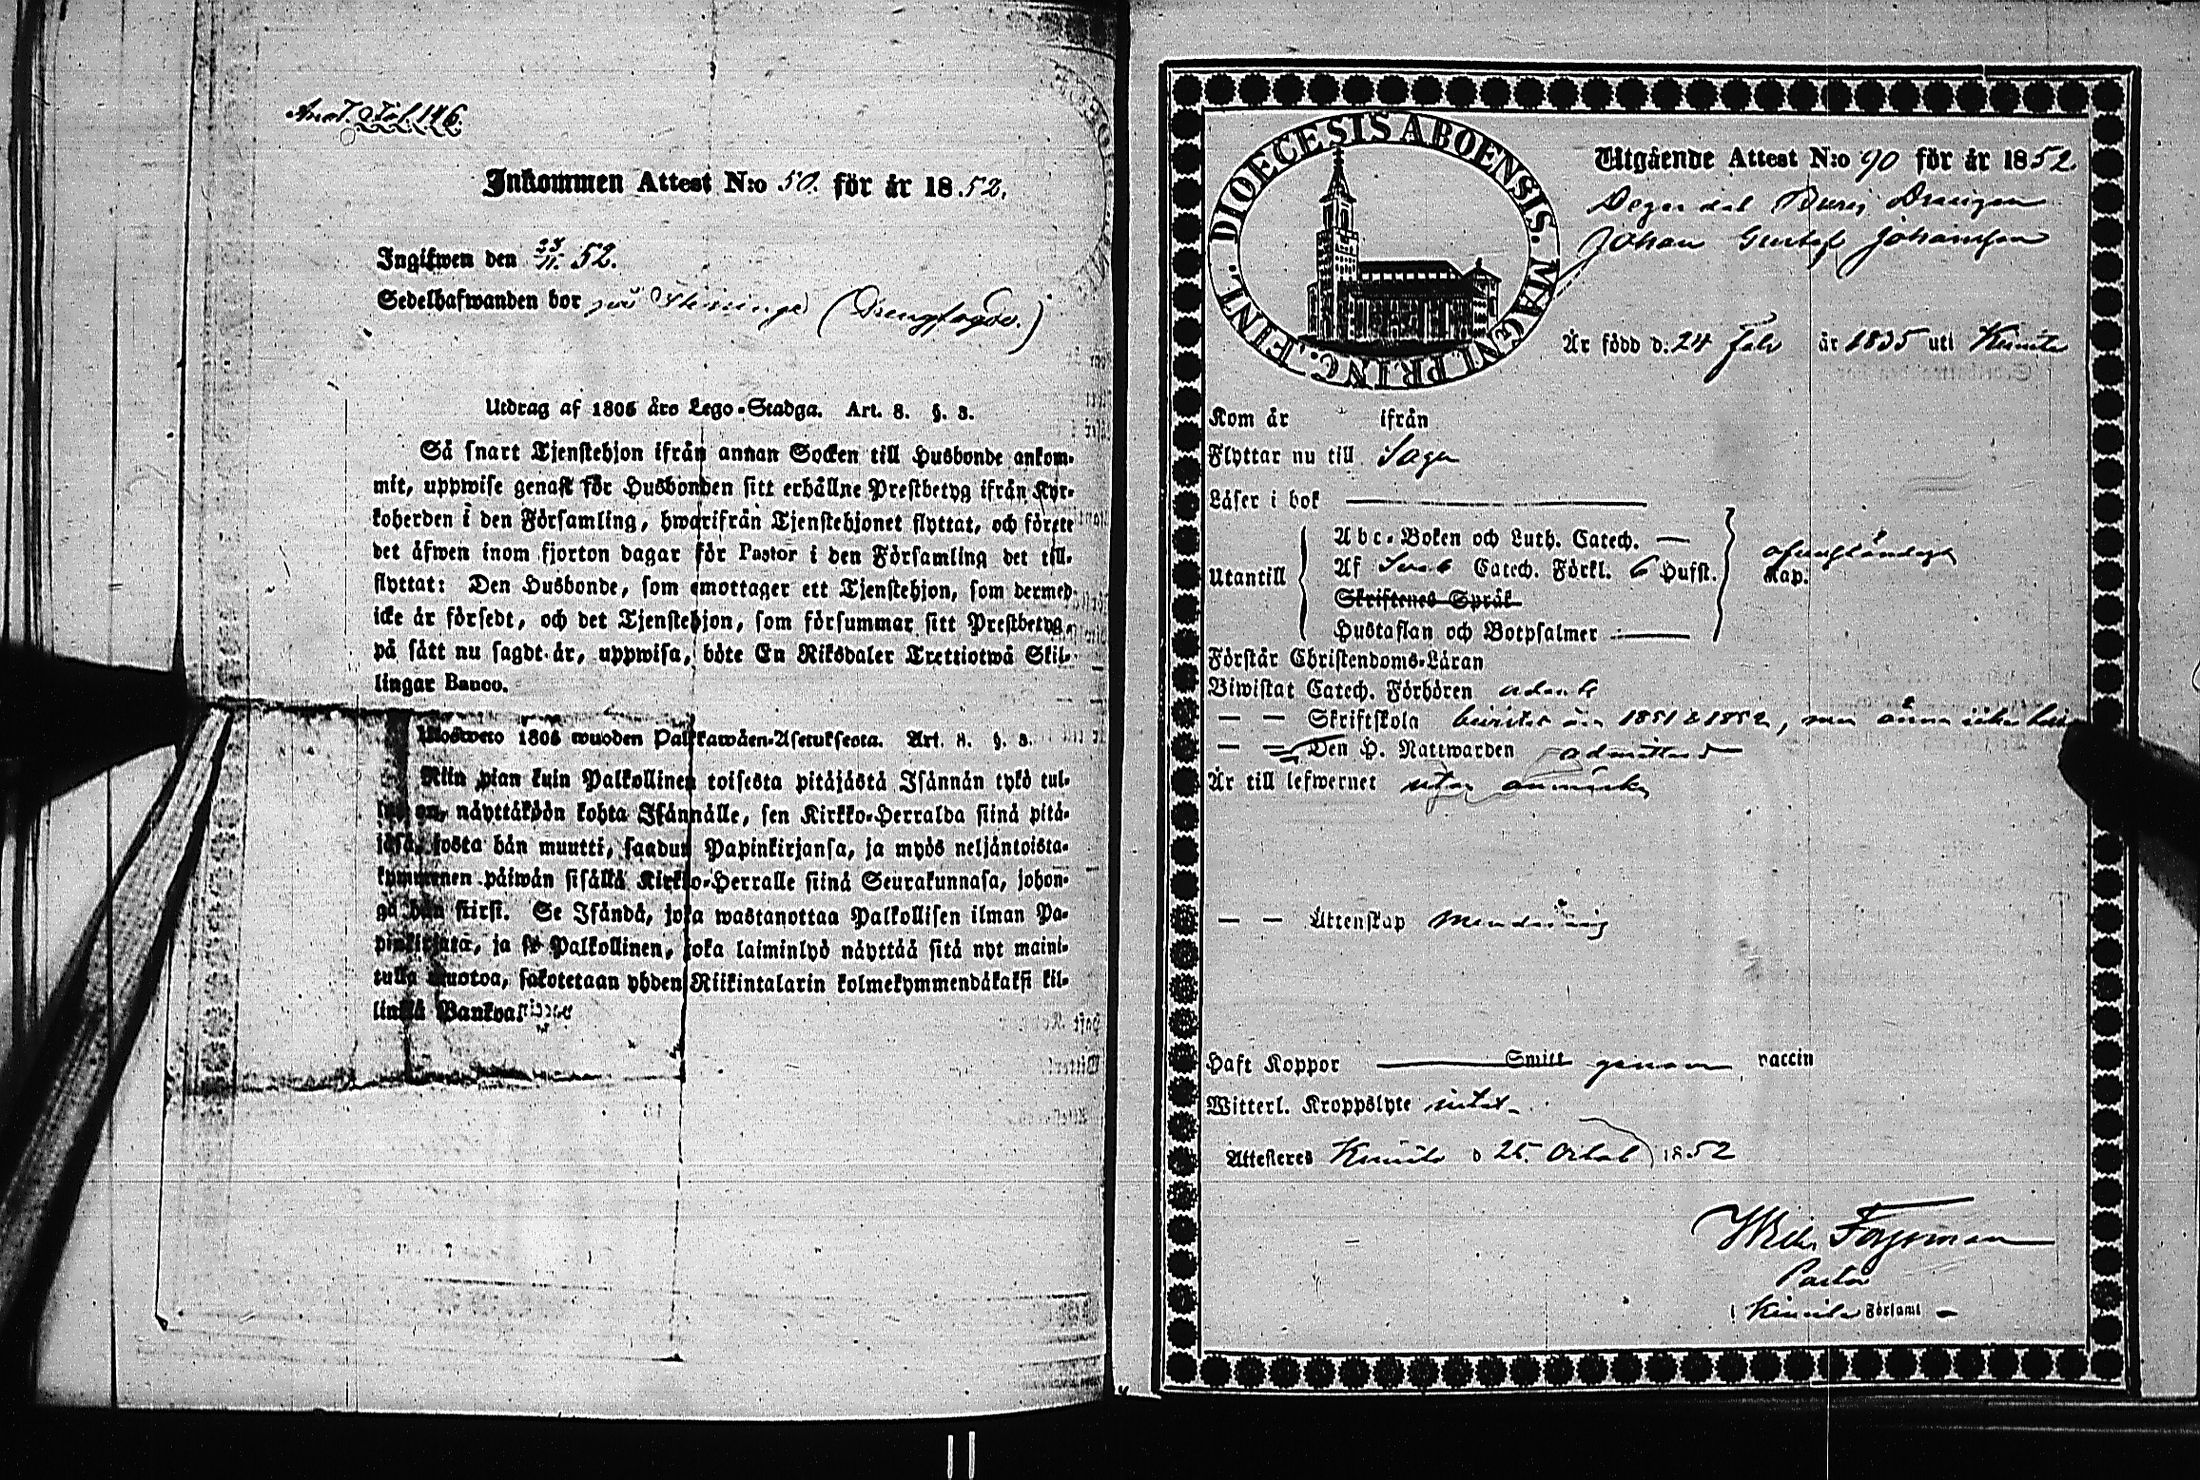 Anot. Fol. 146.
Inkommen Attest N:o 50. för år 1852.
Ingifwen den 23/11. 52.
Sedelhafwanden bor på
Utdrag af 1805 års Lego-Stadga. Art. 8. §. 3.
Så snart Tjenstehjon ifrån annan Socken till Husbonde ankom-
mit, uppwise genast för Husbonden sitt erhållne Prestbetyg ifrån Kyr-
koherden i den Församling, hwarifrån Tjenstehjonet flyttat, och förete
det äfwen inom fjorton dagar för Pastor i den Församling det till-
flyttat: Den Husbonde, som emottager ett Tjenstehjon, som dermed
icke är försedt, och det Tjenstehjon, som försummar sitt Prestbetyg,
på sätt nu sagdt är, uppwisa, böte En Riksdaler Trettiotwå Skil-
lingar Banco.
Ulosweto 1805 wuoden Palkawäen-Asetuksesta. Art. 8. §. 3.
Niin pian kuin Palkollinen toisesta pitäjästä Isännän tykö tul-
lut on, näyttäköön kohta Isännälle, sen Kirkko-Herralda siinä pitä-
jäsä, josta hän muutti, saadun Papinkirjansa, ja myös neljäntoista-
kymmenen päiwän sisällä Kirkko-Herralle siinä Seurakunnasa, johon-
ga hän siirsi. Se Isändä, joka wastanottaa Palkollisen ilman Pa-
pinkirjata, ja se Palkollinen, joka laiminlyö näyttää sitä nyt maini-
tulla muotoa, sakotetaan yhden Riikintalarin kolmekymmendäkaksi kil-
lingiä Bankoa
DIOECESIS ABOENSIS. MAGNI PRINC. FINL.
Utgående Attest N:o 90 för år 1852
Drängen
Johan Gustaf Johansson
Är född d. 24 Febr år 1835 uti Kimito
Kom år ifrån
Flyttar nu till Sagu
Läser i bok
Utantill
Abc-Boken och Luth. Catech.
Af Cateh. Förkl. 6 Hufst.
Kap.
Skriftenes Språk
Hustaflan och Botpsalmer
Förstår Christendoms-Läran
Biwistat Catech. Förhören
— — Skriftskola bevistat åren 1851 & 1852, men ännu icke
— — Den H. Nattwarden admitterad
Är till lefwernet utan anmärkn
— — Ättenskap
Haft Koppor Smitt genom vaccin
Witterl. Kroppslyte intet
Attesteres Kimito d 25. Octob 1852
Wilh. Forsman
Pastor
i Kimito Församl